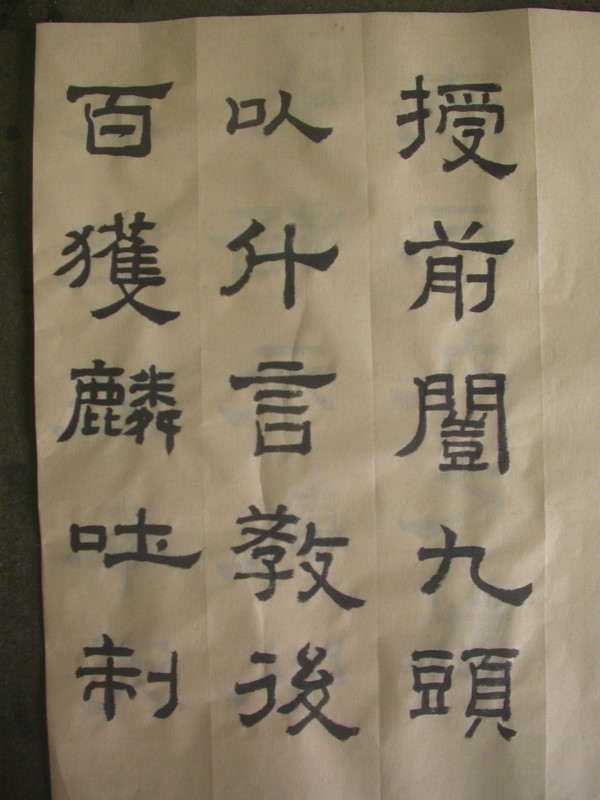 授前闓九頭
以什言教後
百獲麟吐制